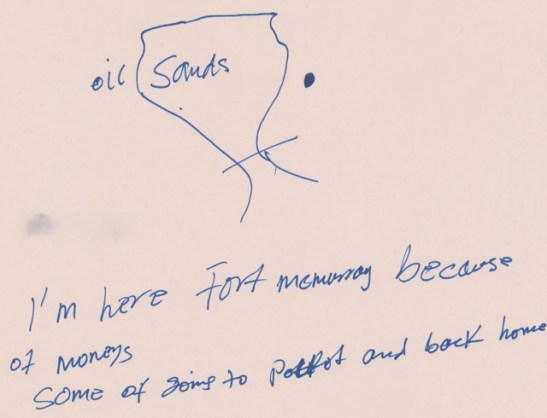 oil Sands
I'm here Fort mcmurray because
of moneys
Some of going to and back home